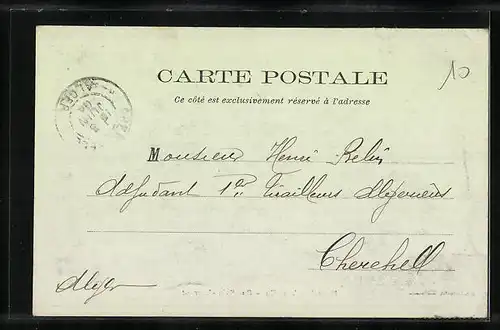 CARTE POSTALE
Ce côté est exclusivement réservé à l'adresse
10
ALGER
Monsieur Henri
Adjudant 1er Tirailleurs Algériens
Cherchell
Alger